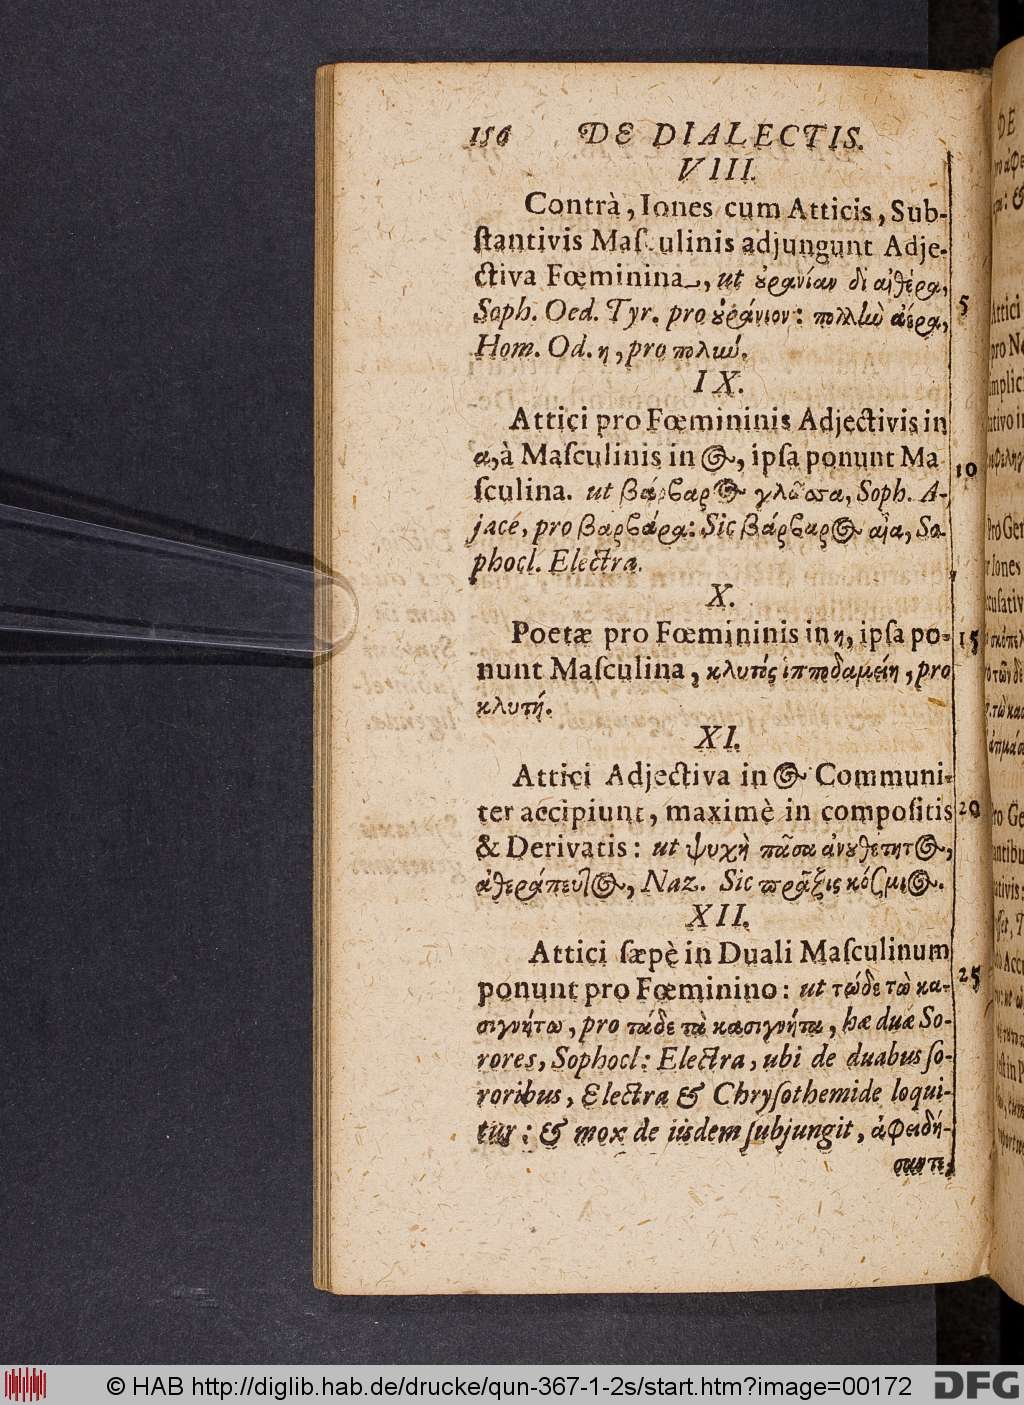 156 DE DIALECTIS.
VIII.
Contrà, Iones cum Atticis, Sub-
ſtantivis Maſculinis adjungunt Adje-
ctiva Fœminina, ut ȣρανίαν δι αἰθέρα,
Soph. Oed. Tyr. pro ȣράνιον: πολλὺν ἀέρα, 5
Hom. Od. η, pro πολιήν.
IX.
Attici pro Fœmininis Adjectivis in
α, à Maſculinis in ος, ipſa ponunt Ma 10
ſculina. ut βάρβαρος γλῶσσα, Soph. A-
jacé, pro βαρβάρα: Sic βάρβαρος αἶα, So-
phocl. Electra.
X.
Poetæ pro Fœmininis in η, ipſa po- 15
nunt Maſculina, κλυτὸς ἱπποδαμείη, pro
κλυτή.
XI.
Attici Adjectiva in ος Communi-
ter accipiunt, maximè in compoſitis 20
& Derivatis: ut ψυχὴ πᾶσα ἀνȣθέτητος,
ἀθεράπευτος, Naz. Sic πρᾶξις κόσμιος.
XII.
Attici ſæpè in Duali Maſculinum
ponunt pro Fœminino: ut τώδε τὼ κα- 25
σιγνήτω, pro τάδε τὰ κασιγνήτα, hæ duæ So-
rores, Sophocl: Electra, ubi de duabus ſo-
roribus, Electra & Chryſothemide loqui-
tur: & mox de iisdem ſubjungit, ἀφειδή-
σαντε,
© HAB http://diglib.hab.de/drucke/qun-367-1-2s/start.htm?image=00172
DFG